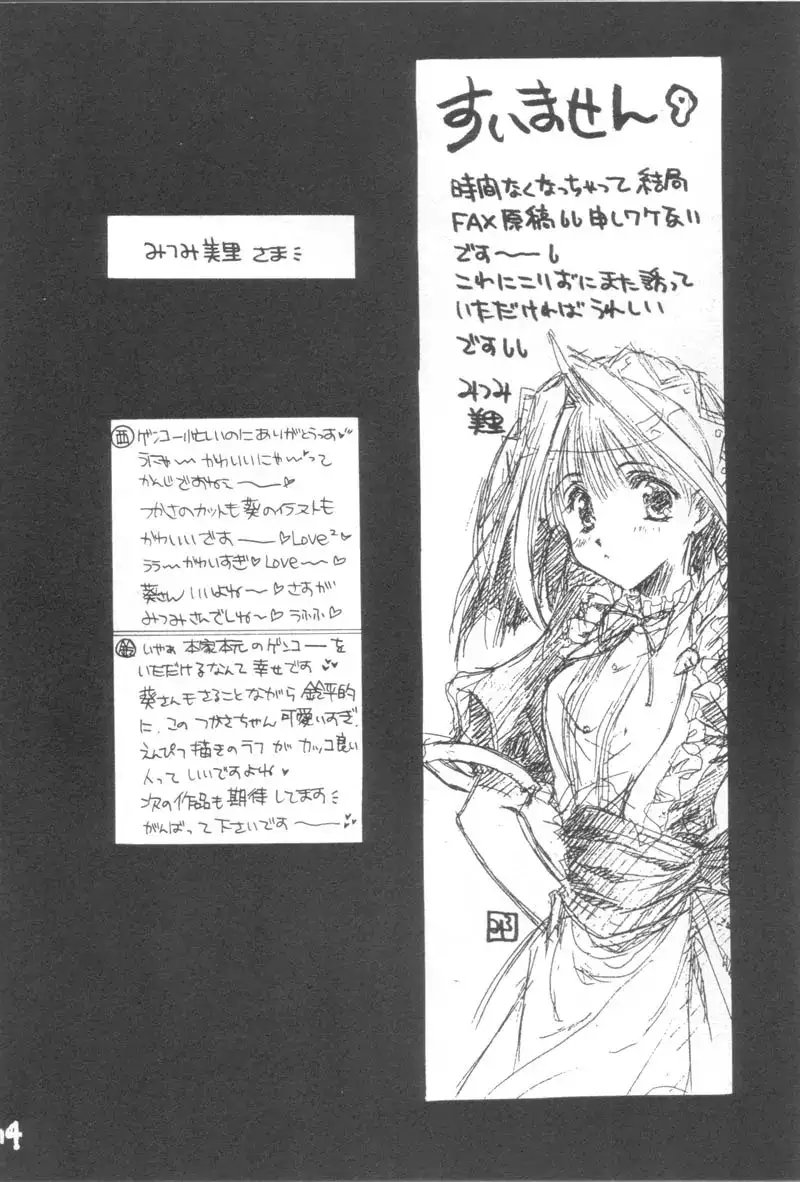 すいません
時間なくなっちゃって結局
FAX原稿 申しワケない
です〜〜
これにこりおにまた誘って
いただければうれしい
です
みつみ
美里
みつみ美里 さま
西 ゲンコー忙しいのにありがとうっす
うにゃ〜 かわいいにゃ〜って
かんじですねェ〜
つかさのカットも葵のイラストも
かわいいです〜〜♡Love²
ララ〜かわいすぎ♡Love〜♡
葵さん いいよね〜♡さすが
みつみさんでしね〜♡うふふ♡
鈴 いやぁ 本家本元のゲンコーを
いただけるなんて 幸せです
葵さんもさることながら 鈴平的
に、この つかさちゃん 可愛いすぎ.
えんぴつ描きのラフ が カッコ良い
人って いいですよね
次の作品も 期待 してます
がんばって 下さいです〜〜
14